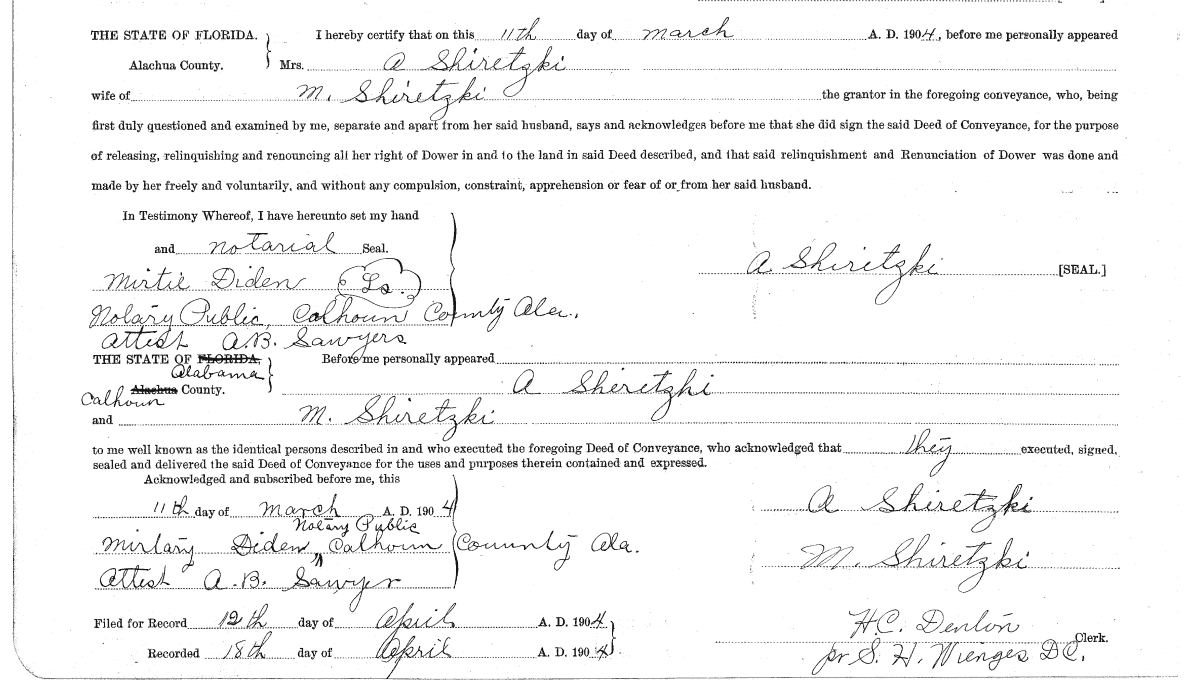 THE STATE OF FLORIDA. I hereby certify that on this 11th day of march A. D. 1904, before me personally appeared
Alachua County. Mrs. A Shiretzki
wife of M. Shiretzki the grantor in the foregoing conveyance, who, being
first duly questioned and examined by me, separate and apart from her said husband, says and acknowledges before me that she did sign the said Deed of Conveyance, for the purpose
of releasing, relinquishing and renouncing all her right of Dower in and to the land in said Deed described, and that said relinquishment and Renunciation of Dower was done and
made by her freely and voluntarily, and without any compulsion, constraint, apprehension or fear of or from her said husband.
In Testimony Whereof, I have hereunto set my hand
and notarial Seal.
A Shiretzki [SEAL.]
Mirtie Diden Ls.
Notary Public, Calhoun County Ala.
attest A.B. Sawyers
THE STATE OF FLORIDA. Before me personally appeared
Alabama
Alachua County. A Shiretzki
Calhoun
and M. Shiretzki
to me well known as the identical persons described in and who executed the foregoing Deed of Conveyance, who acknowledged that they executed, signed,
sealed and delivered the said Deed of Conveyance for the uses and purposes therein contained and expressed.
Acknowledged and subscribed before me, this
11th day of March A. D. 1904
A Shiretzki
Notary Public
Mirtary Diden, Calhoun Counnty Ala.
M. Shiretzki
Attest A.B. Sawyer
Filed for Record 12th day of April A. D. 1904
H.C. Denton Clerk.
Recorded 18th day of April A. D. 1904
pr S. H. Wienges D.C.